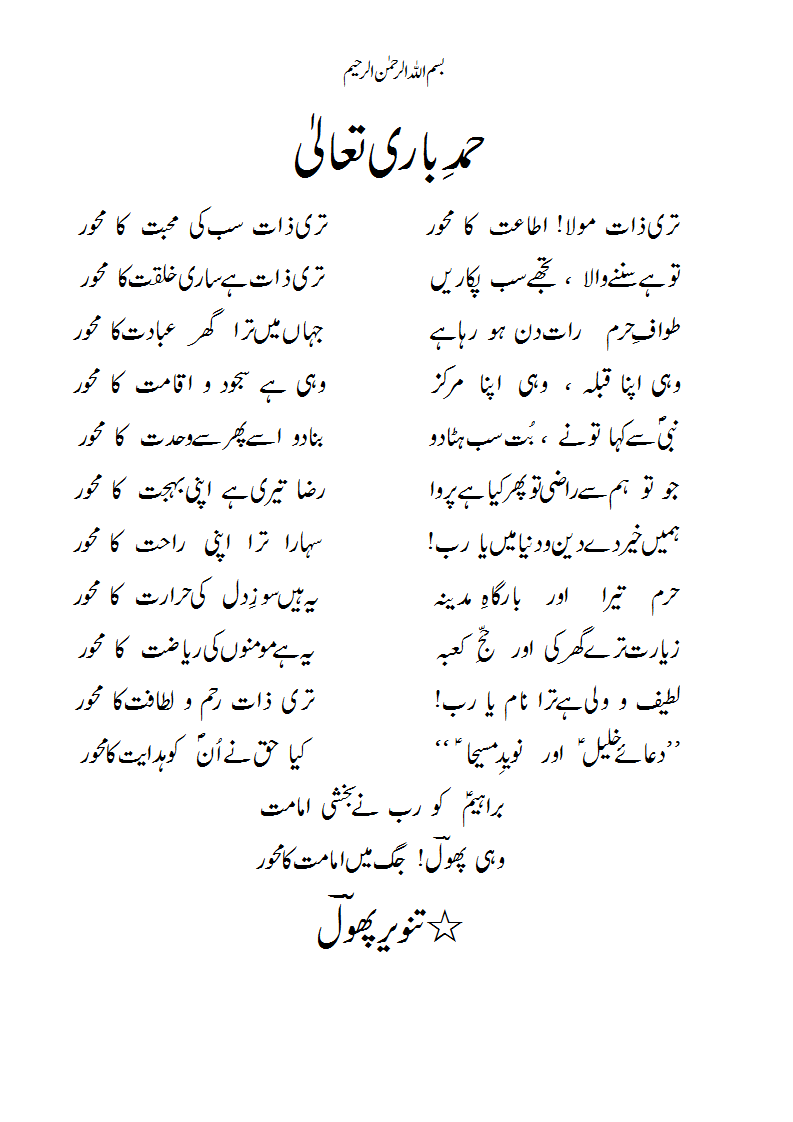 بسم اللہ الرحمٰن الرحیم
حمدِ باری تعالیٰ
تری ذات مولا! اطاعت کا محور تری ذات سب کی محبت کا محور
تو ہے سننے والا ، تجھے سب پکاریں تری ذات ہے ساری خلقت کا محور
طوافِ حرم رات دن ہو رہا ہے جہاں میں ترا گھر عبادت کا محور
وہی اپنا قبلہ ، وہی اپنا مرکز وہی ہے سجود و اقامت کا محور
نبیؐ سے کہا تو نے ، بُت سب ہٹا دو بنا دو اسے پھر سے وحدت کا محور
جو تو ہم سے راضی تو پھر کیا ہے پروا رضا تیری ہے اپنی بہجت کا محور
ہمیں خیر دے دین و دنیا میں یا رب! سہارا ترا اپنی راحت کا محور
حرم تیرا اور بارگاہِ مدینہ یہ ہیں سوزِ دل کی حرارت کا محور
زیارت ترے گھر کی اور حجِّ کعبہ یہ ہے مومنوں کی ریاضت کا محور
لطیف و ولی ہے ترا نام یا رب! تری ذات رحم و لطافت کا محور
’’دعائے خلیلؑ اور نویدِ مسیحاؑ‘‘ کیا حق نے اُنؐ کو ہدایت کا محور
براہیمؑ کو رب نے بخشی امامت
وہی پھولؔ! جگ میں امامت کا محور
☆ تنویر پھولؔ